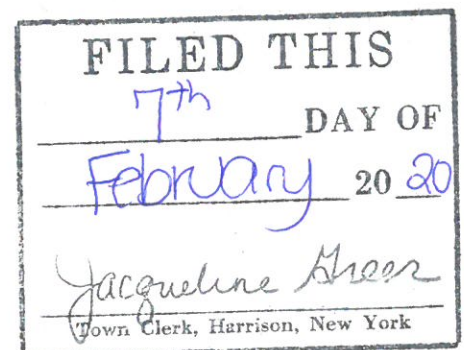 FILED THIS
7th DAY OF
February 20 20
Jacqueline Greer
Town Clerk, Harrison, New York